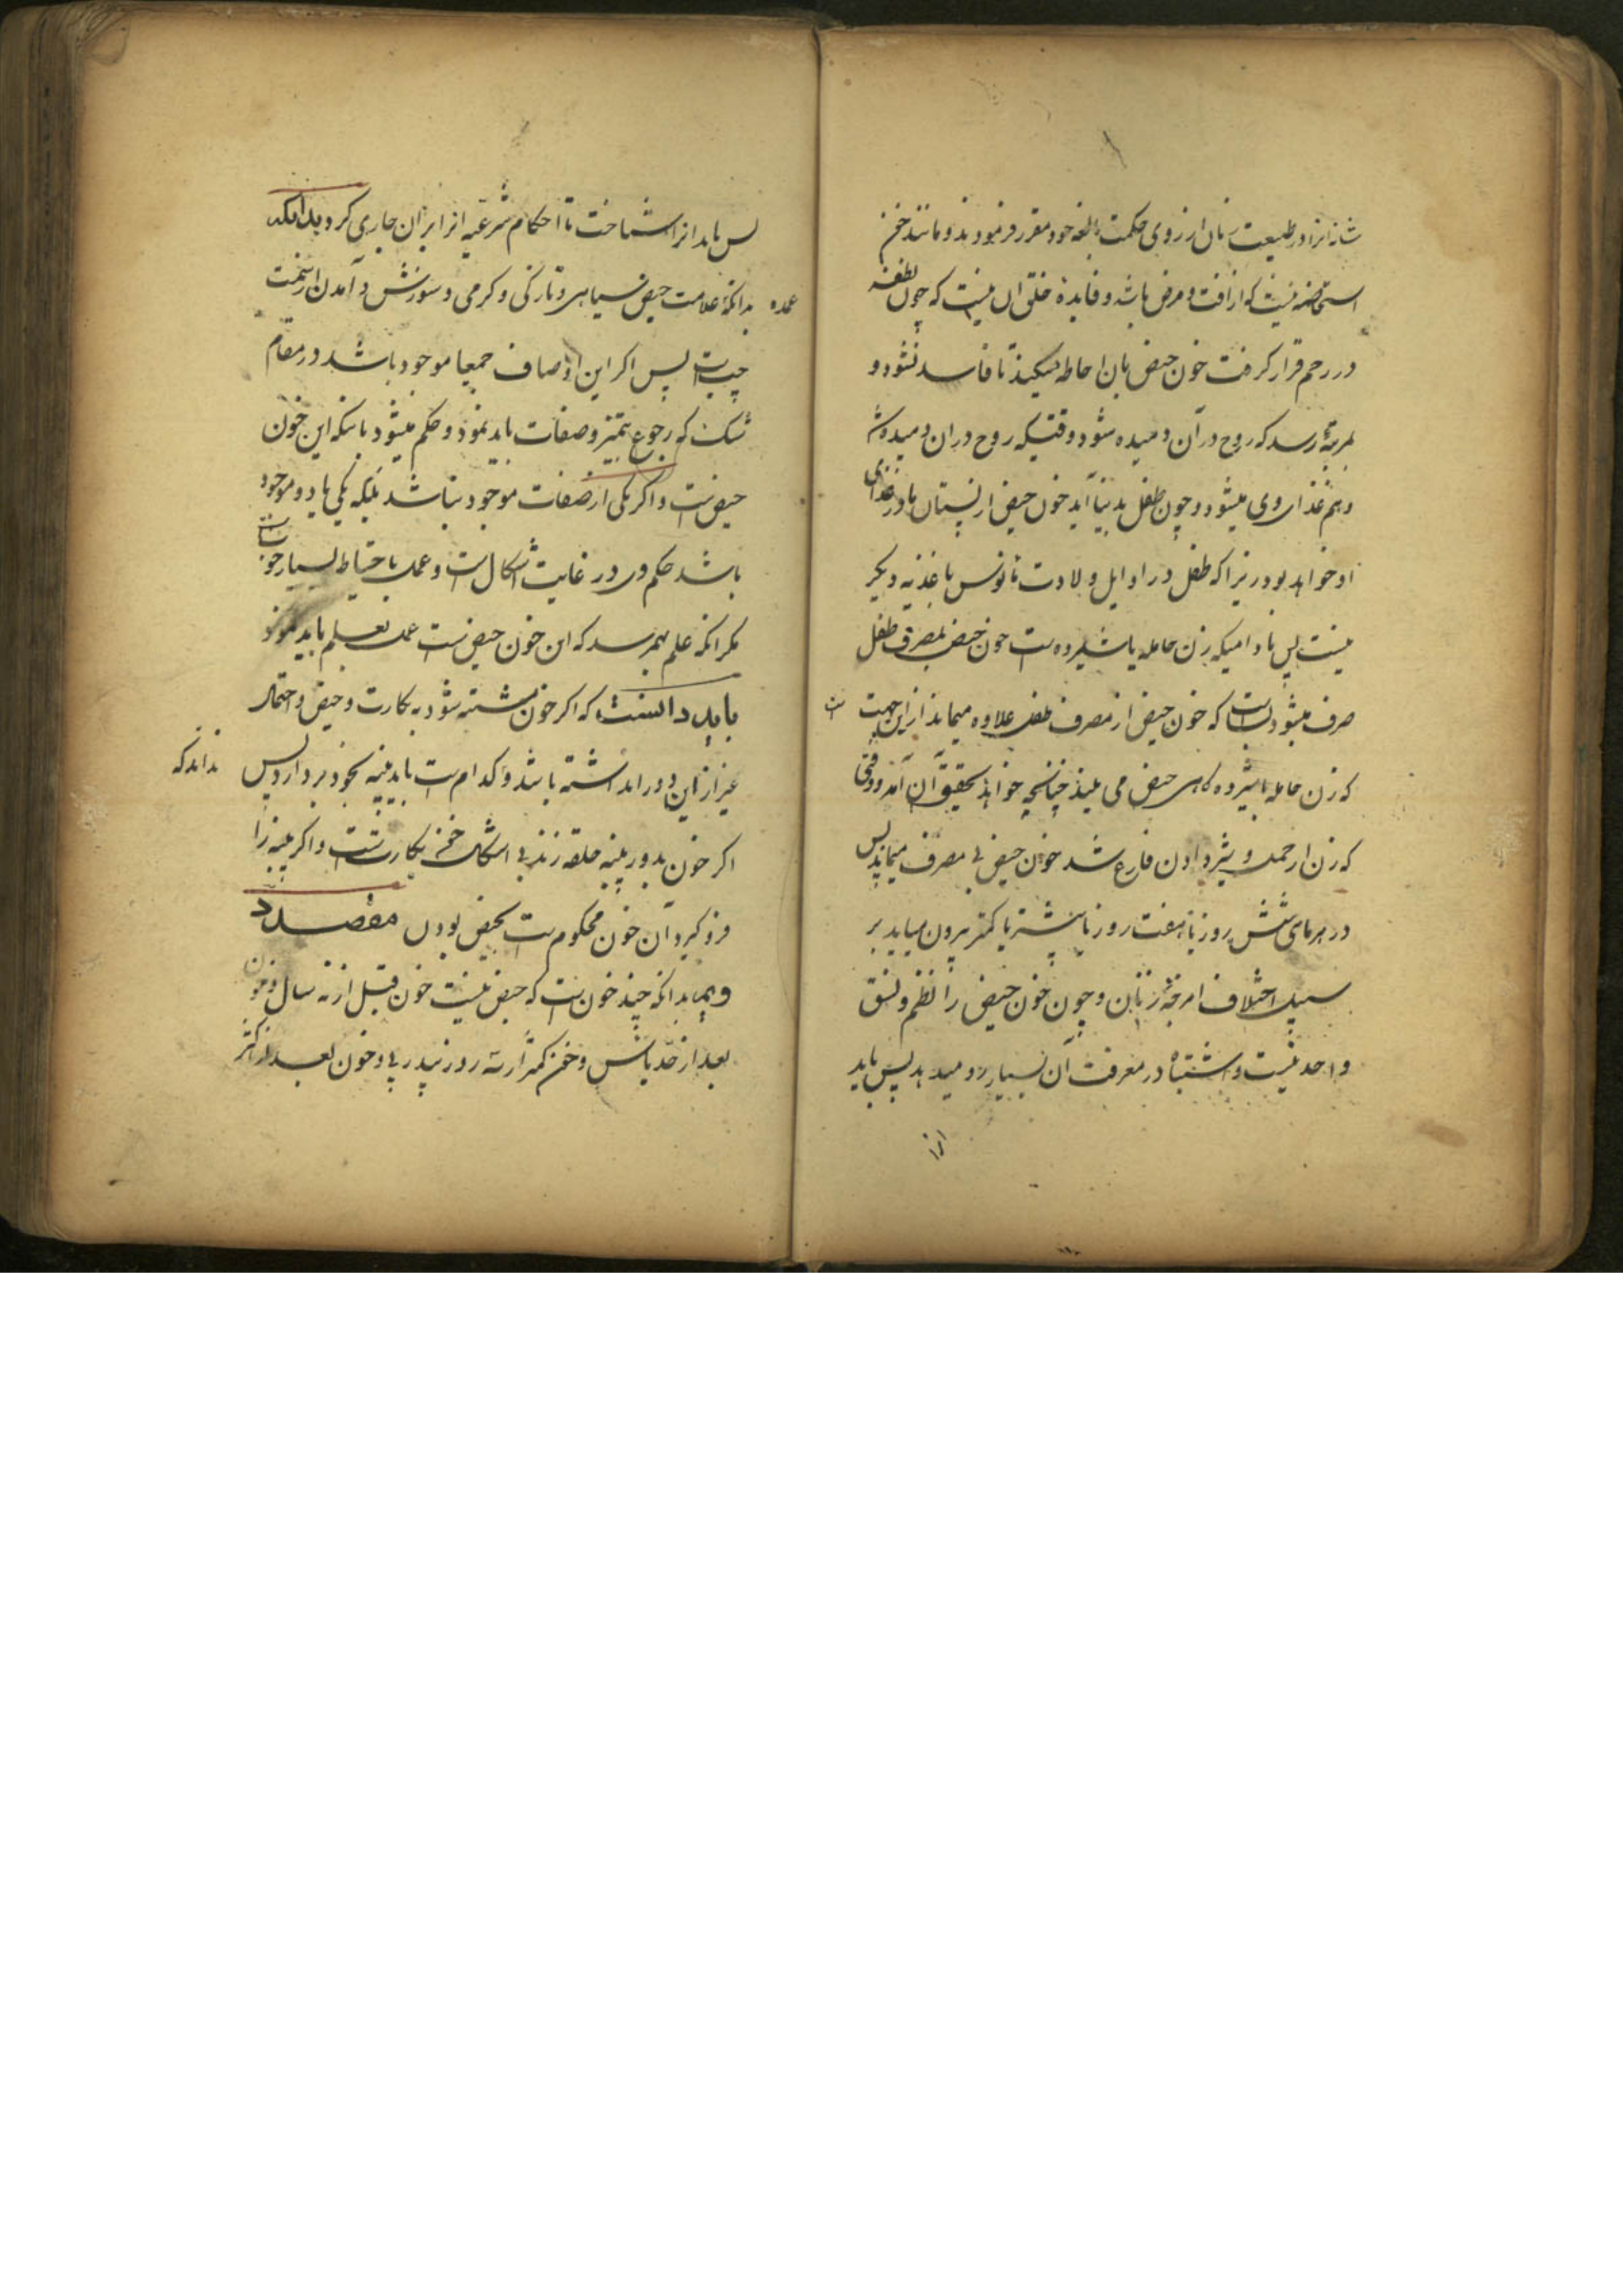 شانه انرا در طبیعت زنان از روی حکمت بالغه خود مقرر فرمودند و مانند خون
استحاضه نیست که از آفت و مرض باشد و فایدۀ خلق آن نیست که چون نطفه
در رحم قرار کرفت خون حیض بان احاطه میکند تا فاسد نشود و
بمرتبۀ رسد که روح در آن دمیده شود وقتیکه روح دران دمیده شد
و هم غذای وی میشود و چون طفل بدنیا آید خون حیض از پستان مادر غذای
او خواهد بود زیرا که طفل در اوایل ولادت مانوس باغذیه دیکر
نیست پس مادامیکه زن حامله یا شیرده است خون حیض بمصرف طفل
صرف میشود بساست که خون حیض از مصرف طفل علاوه میماند از این جهت است
که زن حامله یا شیرده کاهی حیض می بیند چنانچه خواهد تحقیق آن آمد و وقتی
که زن از حمل و شیر دادن فارغ شد خون حیض بی مصرف میماند پس
در هر ماهی شش روز یا هفت روز یا بیشتر یا کمتر بیرون میاید بر
سبیل اختلاف امزجۀ زنان و چون خون حیض را نظم و نسق
واحد نیست و اشتباه در معرفت آن بسیار رو میدهد پس باید
انرا
پس باید انرا شناخت تا احکام شرعیه انرا بران جاری کرد بدانکه
عمده
بدانکه علامت حیض سیاهی و تازکی و کرمی و سوزش و آمدن از سمت
چپ است پس اکر این اوصاف جمیعا موجود باشد در مقام
شک که رجوع بتمیز و صفات باید نمود و حکم میشود باینکه این خون
حیض است و اکر یکی از صفات موجود نباشد بلکه یکی یا دو موجود
باشد حکم وی در غایت اشکال است و عمل باحتیاط بسیار خوب است
مکر انکه علم بهمرسد که این خون حیض است عمل بعلم باید نمود
باید دانست که اکر خون مشتبه شود به بکارت و حیض و احتمال
غیر از این دو را نداشته باشد و کدام است باید پنبه بخود بردارد پس
نداند که
اکر خون بدور پنبه حلقه زند بی اشکال خون بکارتست و اکر پنبه را
فرو کیرد آن خون محکوم است بحیض بودن مقصد
دویم بدانکه چند خون است که حیض نیست خون قبل از نه سال و خون
بعد از حد یائس و خون کمتر از سه روز پی در پی و خون بعد از اکثر